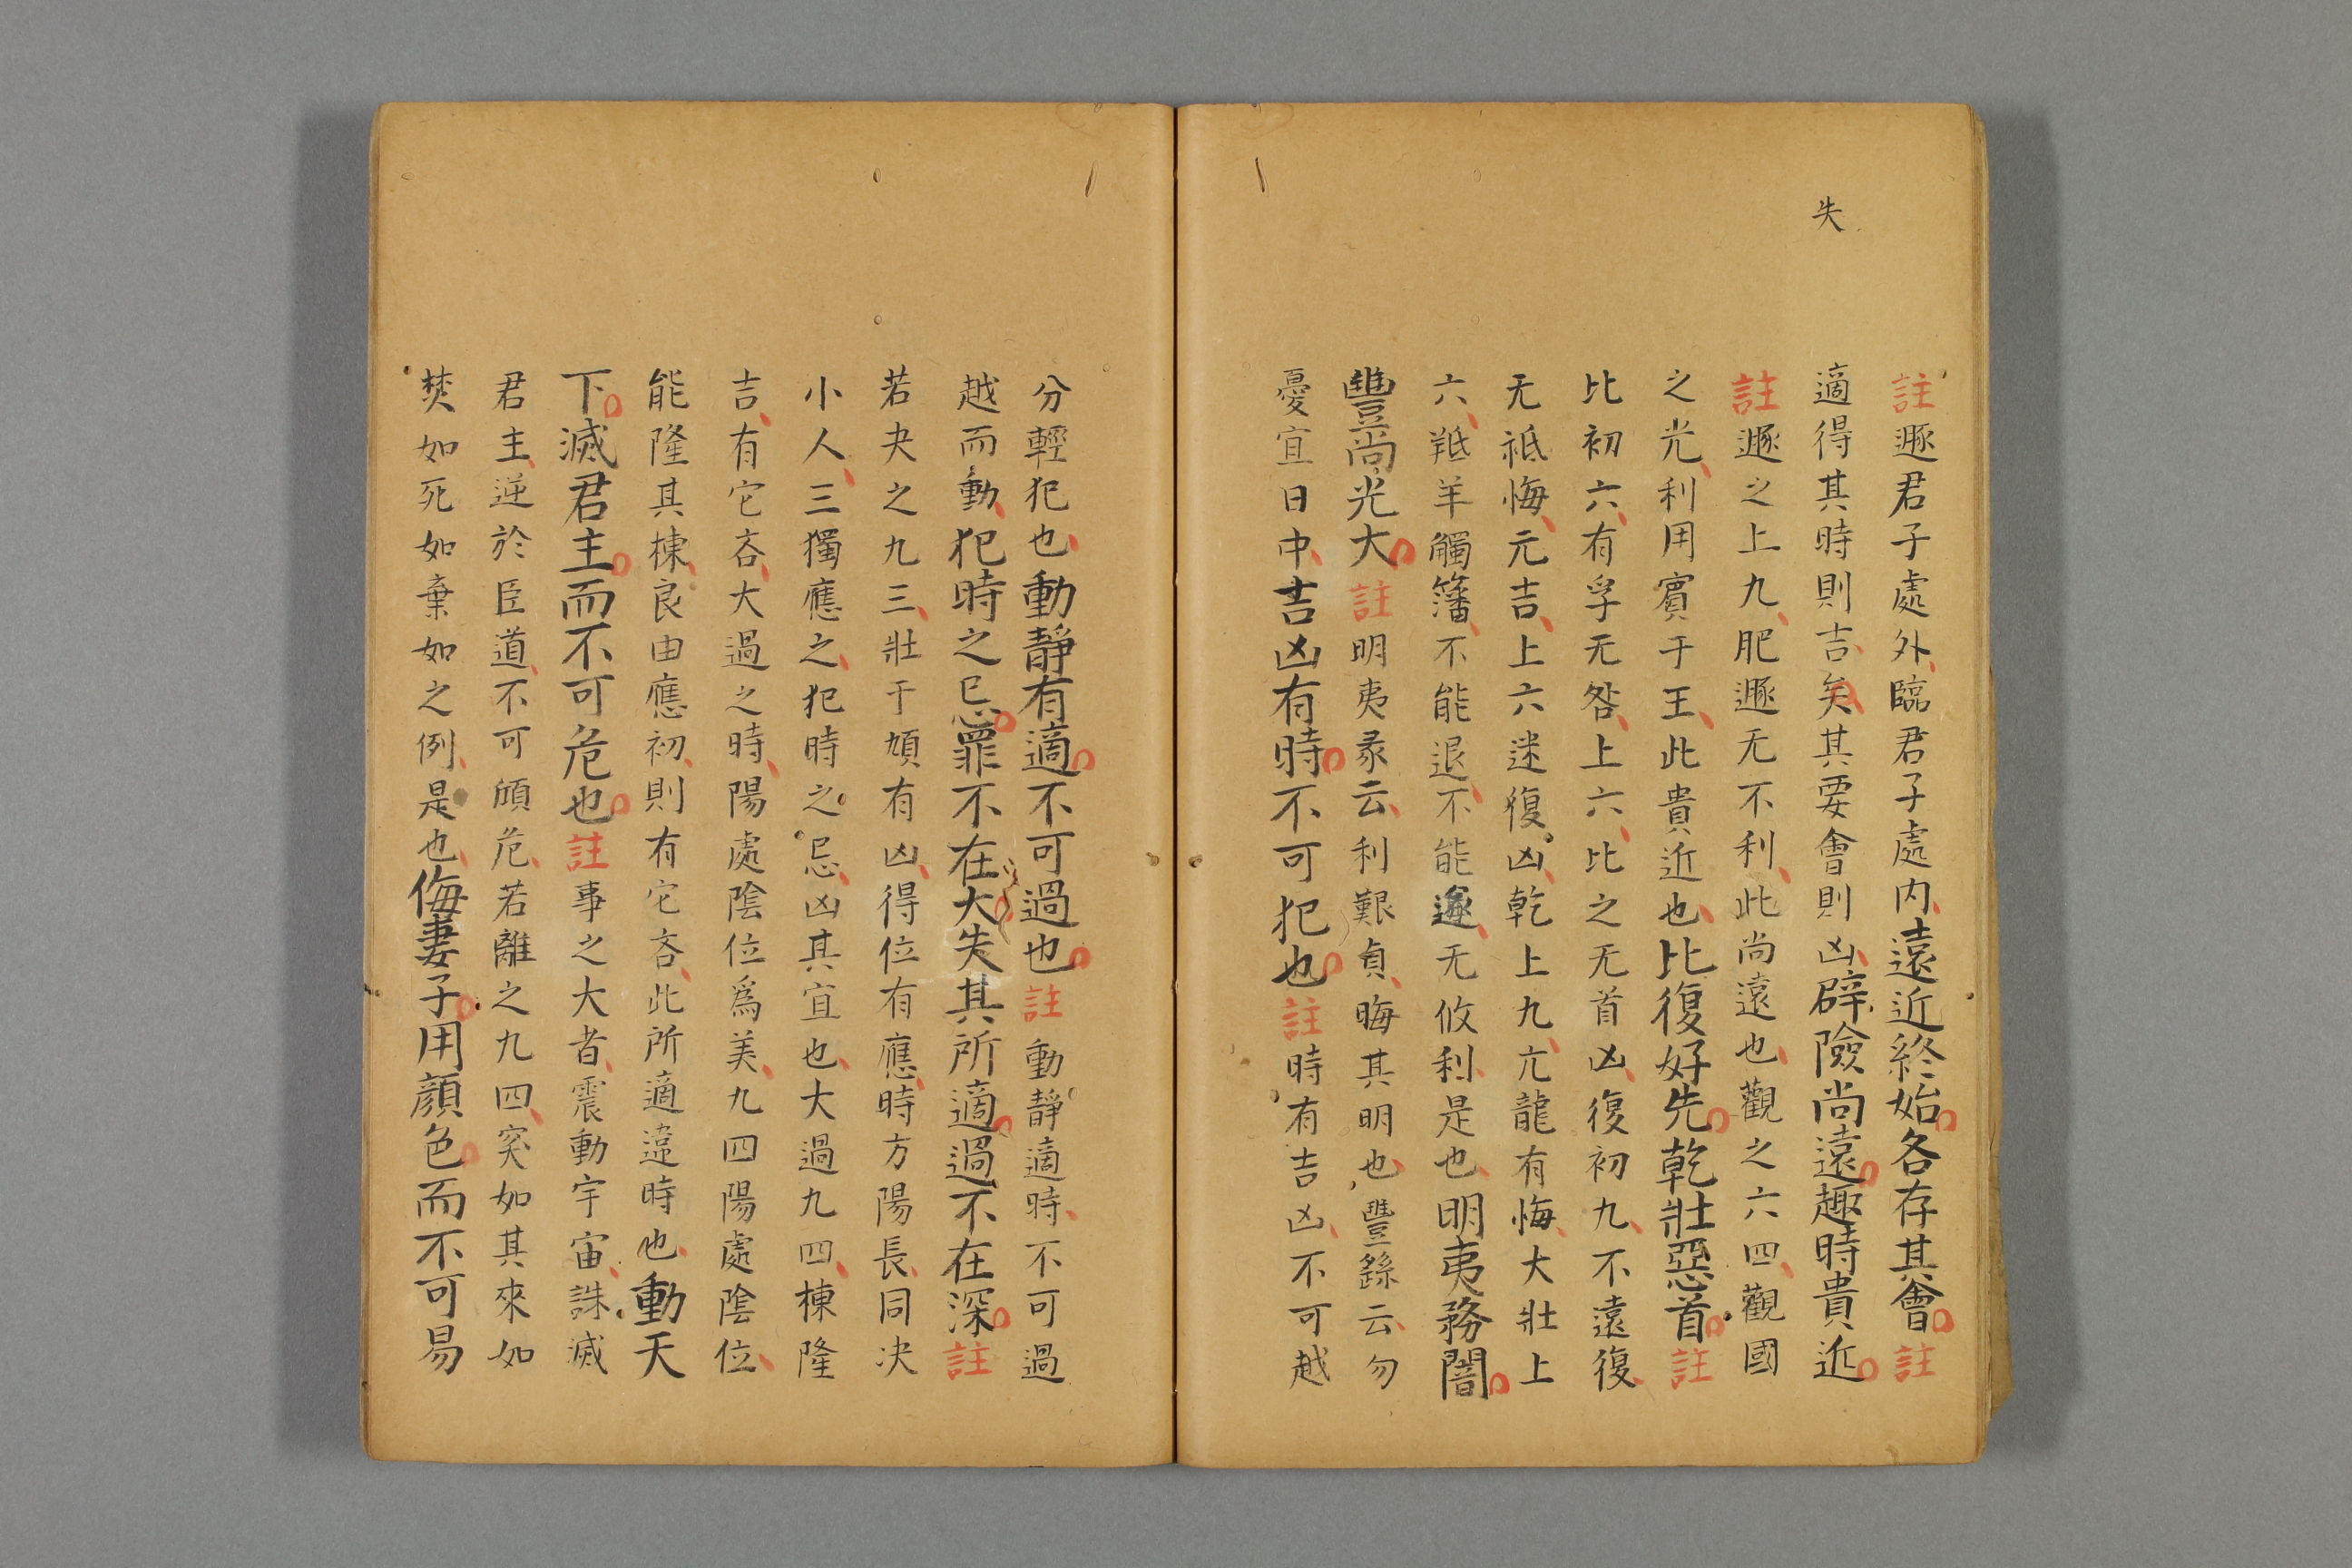 失
註遯君子處外臨君子處内遠近終始各存其會註
適得其時則吉矣其要會則凶辟險尚遠趣時貴近
註遯之上九肥遯无不利此尚遠也觀之六四觀國
之光利用賓于王此貴近也比復好先乾壯惡首註
比初六有孚无咎上六比之无首凶復初九不遠復
无祗悔元吉上六迷復凶乾上九亢龍有悔大壯上
六羝羊觸籓不能退不能遂无攸利是也明夷務闇
豐尚光大註明夷彖云利艱貞晦其明也豐繇云勿
憂宜日中吉凶有時不可犯也註時有吉凶不可越
分輕犯也動靜有適不可過也註動靜適時不可過
越而動犯時之忌罪不在大失其所適過不在深註
若夬之九三壯于頄有凶得位有應時方陽長同决
小人三獨應之犯時之忌凶其宜也大過九四棟隆
吉有它吝大過之時陽處陰位爲美九四陽處陰位
能隆其棟良由應初則有它吝此所適違時也動天
下滅君主而不可危也註事之大者震動宇宙誅滅
君主逆於臣道不可傾危若離之九四突如其來如
焚如死如棄如之例是也侮妻子用顏色而不可易